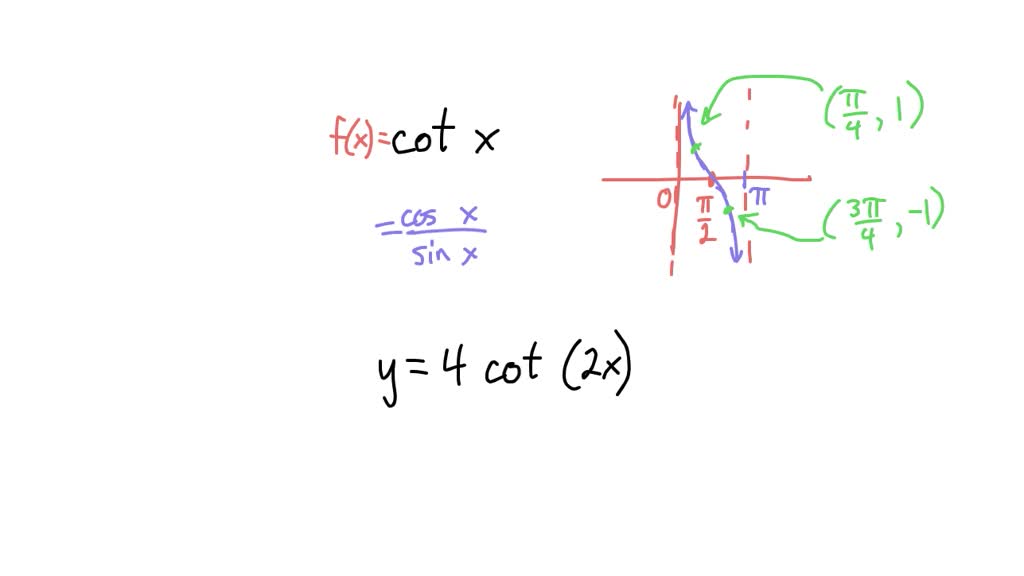 f(x)=cot x
= cos x / sin x
(π/4, 1)
0
π/2
π
(3π/4, -1)
y = 4 cot (2x)